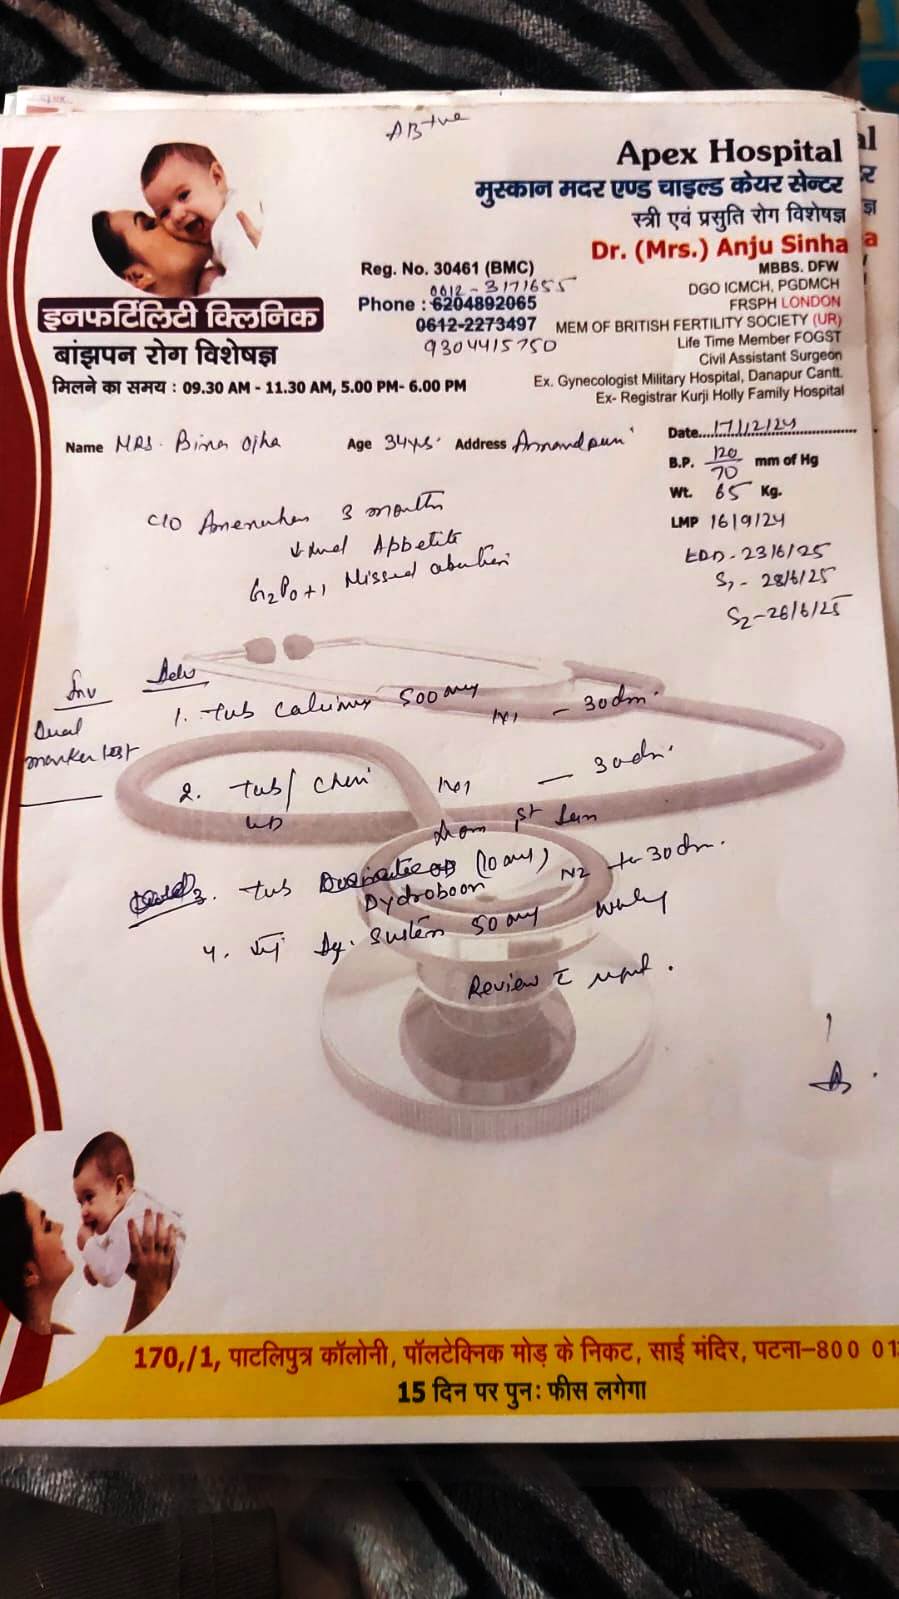 AB+ve
Apex Hospital
मुस्कान मदर एण्ड चाइल्ड केयर सेन्टर
स्त्री एवं प्रसुति रोग विशेषज्ञ
Dr. (Mrs.) Anju Sinha
MBBS. DFW
DGO ICMCH, PGDMCH
FRSPH LONDON
MEM OF BRITISH FERTILITY SOCIETY (UR)
Life Time Member FOGST
Civil Assistant Surgeon
Ex. Gynecologist Military Hospital, Danapur Cantt.
Ex- Registrar Kurji Holly Family Hospital
Reg. No. 30461 (BMC)
0612-3171655
Phone : 6204892065
0612-2273497
9304415750
इनफर्टिलिटी क्लिनिक
बांझपन रोग विशेषज्ञ
मिलने का समय : 09.30 AM - 11.30 AM, 5.00 PM- 6.00 PM
Name MRS. Bina Ojha Age 34yrs. Address
Date 17/12/24
B.P. 120/70 mm of Hg
Wt. 65 Kg.
LMP 16/9/24
EDD - 23/6/25
S1 - 28/6/25
S2 - 26/6/25
C/O 3 months
Appetite
G2P0+1 Missed
Inv
Dual
marker test
1. Tab 500mg 1x1 - 30
2. Tab/ 1x1 - 30
3. Tab (10 mg)
Dydroboon
4. Inj 50 mg
Review
170,/1, पाटलिपुत्र कॉलोनी, पॉलटेक्निक मोड़ के निकट, साई मंदिर, पटना-800 01
15 दिन पर पुनः फीस लगेगा